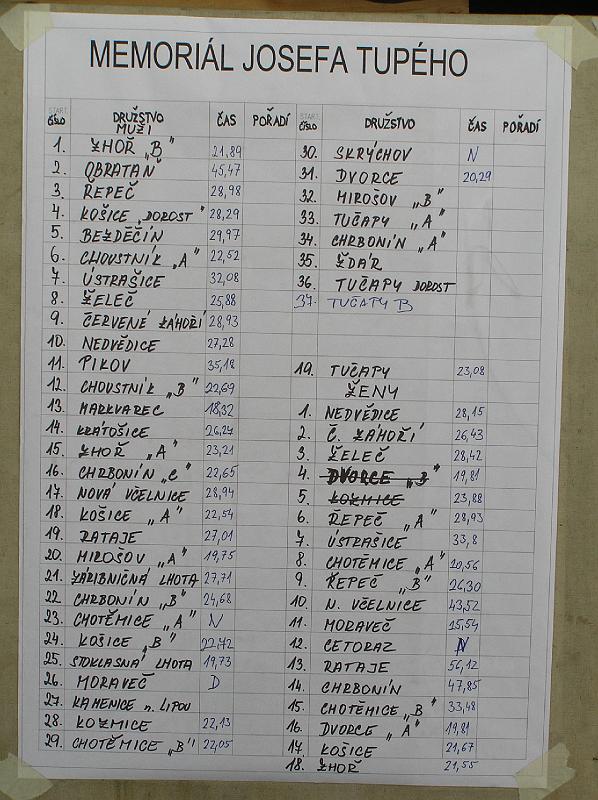 MEMORIÁL JOSEFA TUPÉHO
START. ČÍSLO DRUŽSTVO ČAS POŘADÍ
MUŽI
1. ŽHOŘ „B" 21,89
2. OBRATAŇ 45,47
3. ŘEPEČ 28,98
4. KOŠICE „DOROST" 28,29
5. BEZDĚČÍN 29,97
6. CHOUSTNÍK „A" 22,52
7. ÚSTRAŠICE 32,08
8. ŽELEČ 25,88
9. ČERVENÉ ZÁHOŘÍ 28,93
10. NEDVĚDICE 27,28
11. PIKOV 35,18
12. CHOUSTNÍK „B" 22,69
13. MARKVAREC 18,32
14. KRÁTOŠICE 26,24
15. ŽHOŘ „A" 23,21
16. CHRBONÍN „C" 22,65
17. NOVÁ VČELNICE 28,94
18. KOŠICE „A" 22,54
19. RATAJE 27,01
20. MIROŠOV „A" 19,75
21. ZÁRIBNIČNÁ LHOTA 27,71
22 CHRBONÍN „B" 24,68
23. CHOTĚMICE „A" N
24. KOŠICE „B" 22,42
25. STOKLASNÁ LHOTA 19,73
26. MORAVEČ D
27. KAMENICE n. LIPOU
28. KOZMICE 22,13
29. CHOTĚMICE „B" 22,05
START. ČÍSLO DRUŽSTVO ČAS POŘADÍ
30. SKRÝCHOV N
31. DVORCE 20,29
32. MIROŠOV „B"
33. TUČAPY „A"
34. CHRBONÍN „A"
35. ŽDÁR
36. TUČAPY DOROST
37. TUČAPY B
19. TUČAPY 23,08
ŽENY
1. NEDVĚDICE 28,15
2. Č. ZÁHOŘÍ 26,43
3. ŽELEČ 28,42
4. DVORCE „B" 19,81
5. KOZMICE 23,88
6. ŘEPEČ „A" 28,93
7. ÚSTRAŠICE 33,8
8. CHOTĚMICE „A" 20,56
9. ŘEPEČ „B" 26,30
10. N. VČELNICE 43,52
11. MORAVEČ 15,54
12. CETORAZ N
13. RATAJE 56,12
14. CHRBONÍN 47,85
15. CHOTĚMICE „B" 33,48
16. DVORCE „A" 19,81
17. KOŠICE 21,67
18. ŽHOŘ 21,55